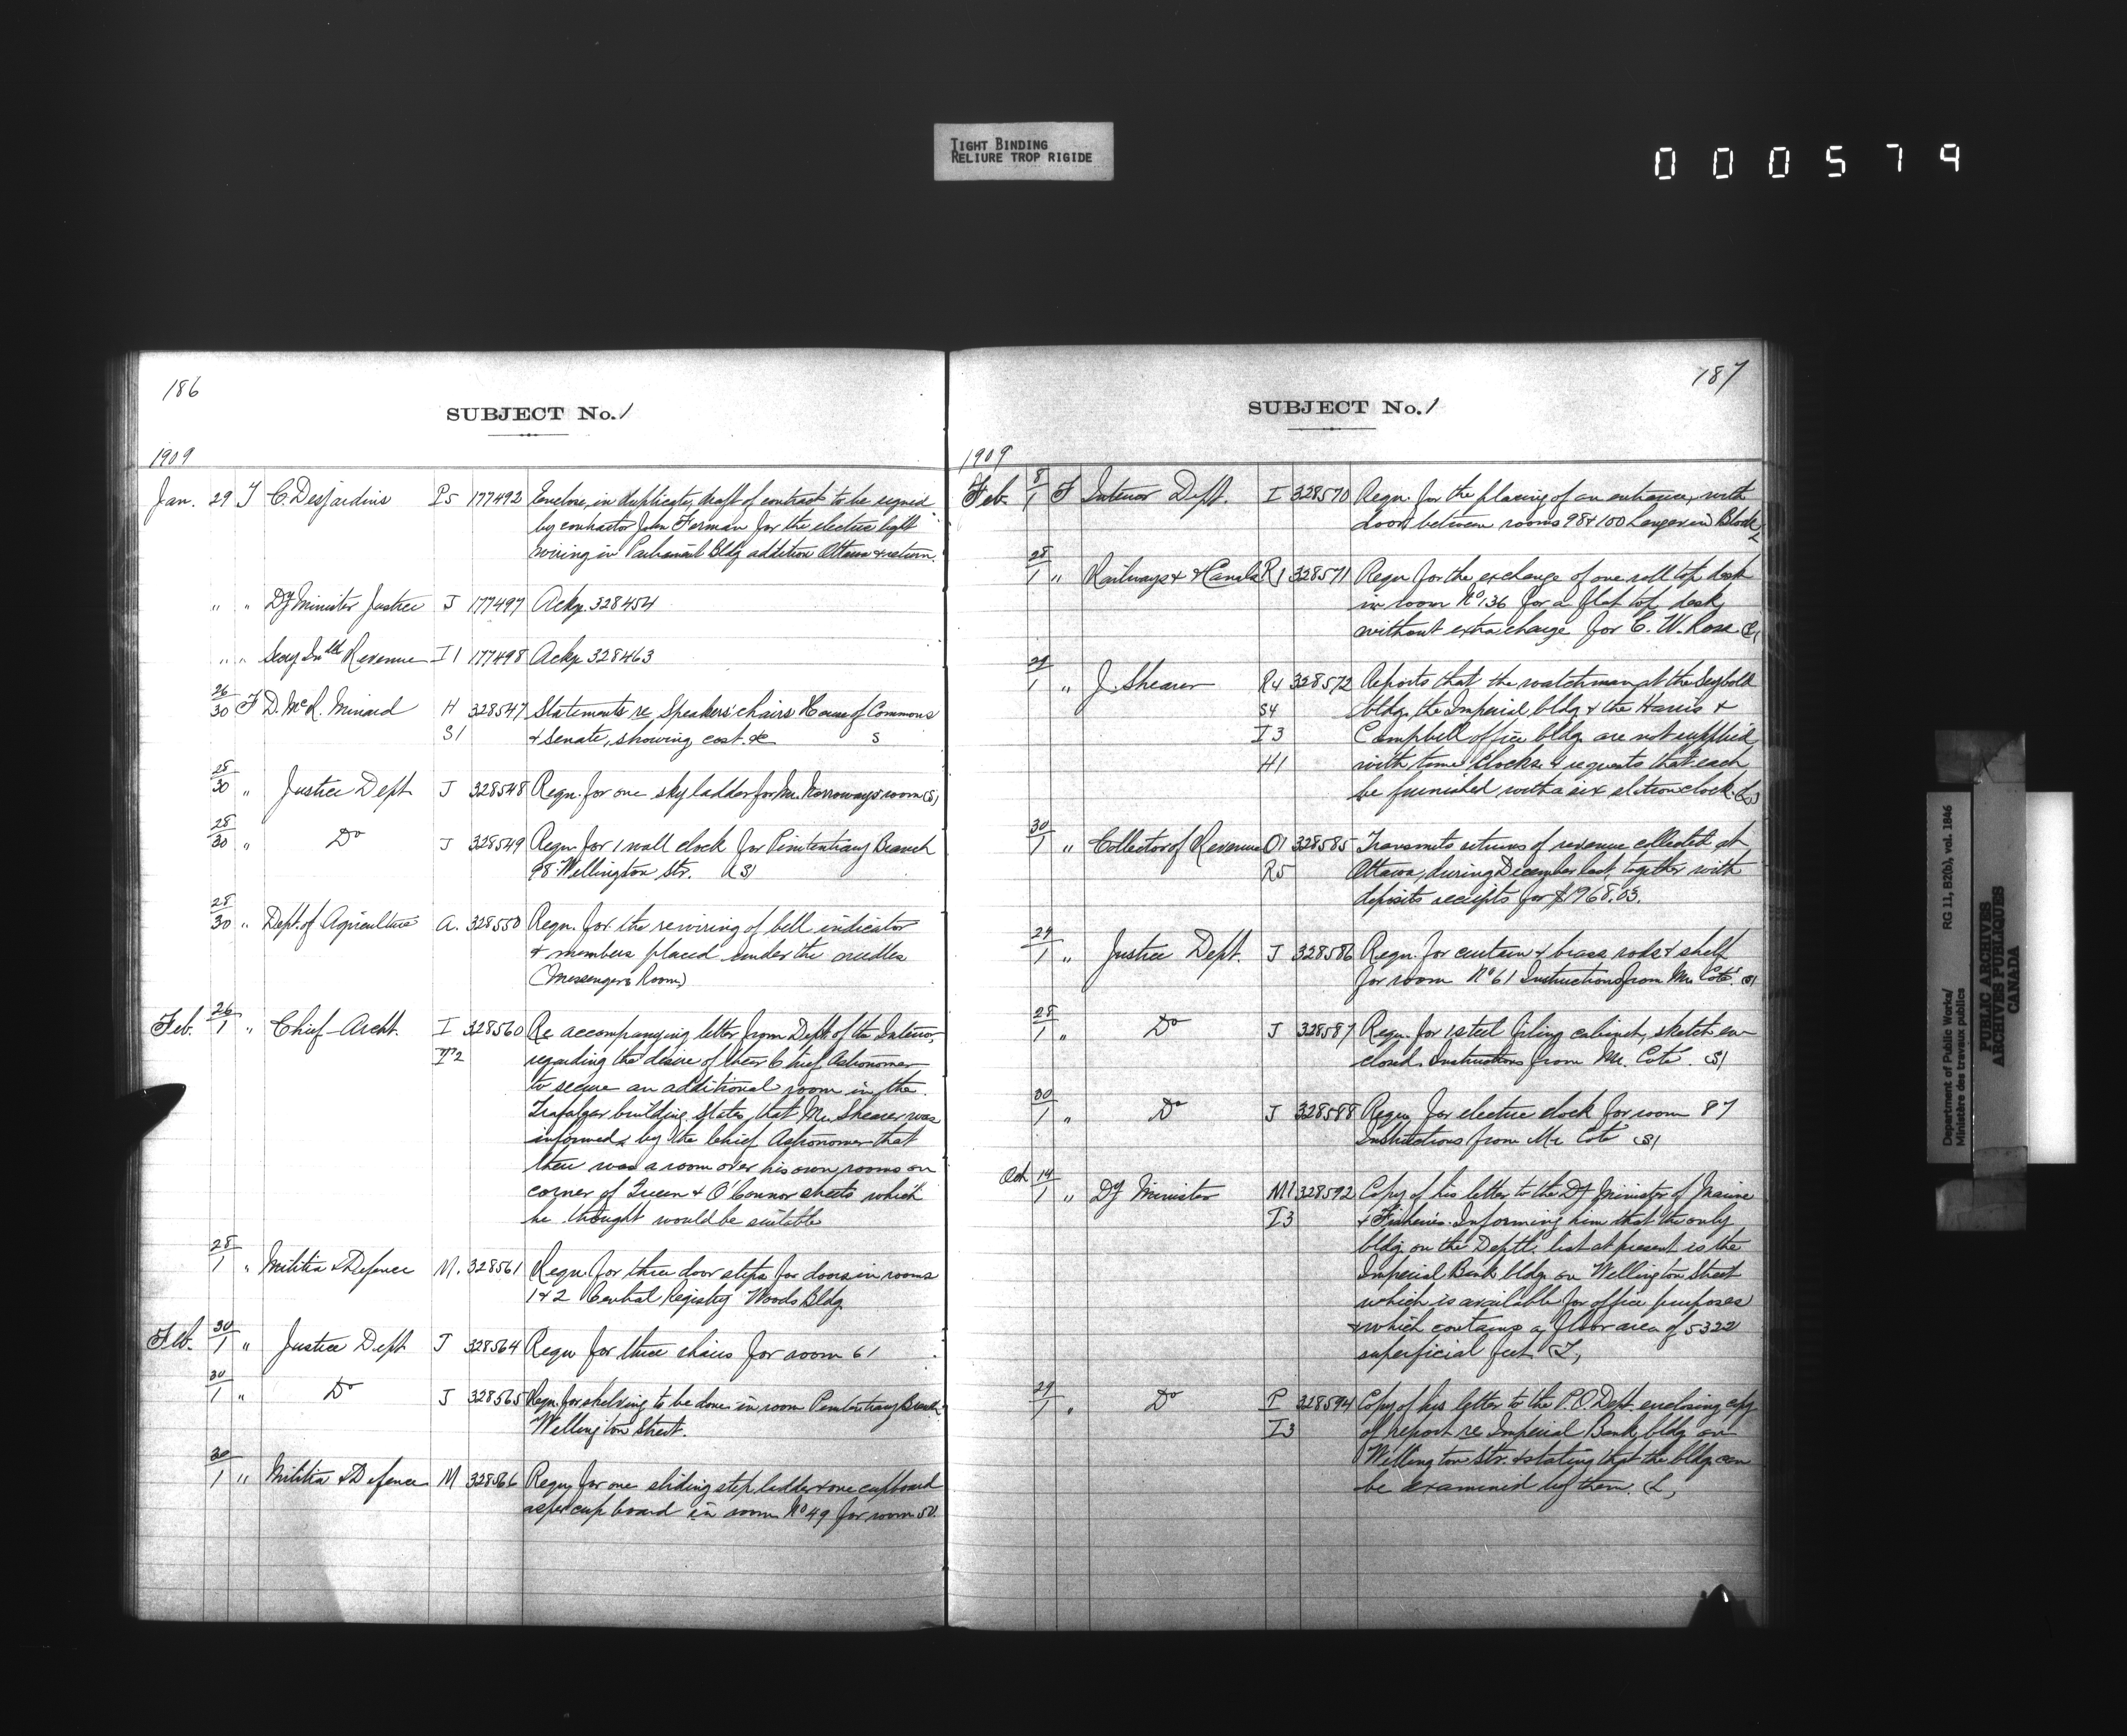 TIGHT BINDING
RELIURE TROP RIGIDE
000579
186
SUBJECT No. 1
1909
Jan. 29 T C. Desjardins P5 177492 Enclose, in duplicate, draft of contract to be signed
by contractor John Forman for the electric light
wiring in Parliament Bldg addition Ottawa & return.
" " Dy Minister Justice J 177497 Ackg. 328454
" " Secy Inld Revenue I1 177498 Ackg 328463
26/30 F D. McR. Minard H 328547 Statements re Speakers' chairs House of Commons
S1 & Senate, showing cost. &c S
28/30 " Justice Dept J 328548 Reqn. for one sky ladder for Mr. room (S)
28/30 " Do J 328549 Reqn for 1 wall clock for Penitentiary Branch
98 Wellington Str. (S)
28/30 " Dept. of Agriculture A. 328550 Reqn. for the rewiring of bell indicator
& members placed under the needles
(Messengers Room)
Feb. 26/1 " Chief Archt. I 328560 Re accompanying letter from Dept of the Interior,
T2 regarding the desire of their Chief Astronomer
to secure an additional room in the
Trafalgar building. States that Mr. Shearer was
informed by the Chief Astronomer that
there was a room over his own rooms on
corner of Queen & O'Connor streets which
he thought would be suitable
28/1 " Militia & Defence M. 328561 Reqn. for three door steps for doors in rooms
1 & 2 Central Registry Woods Bldg
Feb. 30/1 " Justice Dept J 328564 Reqn for three chairs for room 61
30/1 " Do J 328565 Reqn. for shelving to be done in room Penitentiary Branch
Wellington Street.
30/1 " Militia & Defence M 328566 Reqn. for one sliding step ladder & one cupboard
as per cup board in room No 49 for room 50.
187
SUBJECT No. 1
1909
Feb. 8/1 F Interior Dept. I 328570 Reqn. for the placing of an entrance, with
door, between rooms 98 & 100 Langevin Block
L
28/1 " Railways & Canals R1 328571 Reqn for the exchange of one roll top desk
in room No 136 for a flat top desk,
without extra charge for C. W. Ross
29/1 " J. Shearer R4 328572 Reports that the watchman at the Seybold
S4 bldg. the Imperial bldg & the Harris &
I3 Campbell office bldg. are not supplied
H1 with time clocks & requests that each
be furnished with a six station clock.
30/1 " Collector of Revenue O1 328585 Transmits returns of revenue collected at
R5 Ottawa, during December last, together with
deposits receipts for $1968.03.
29/1 " Justice Dept. J 328586 Reqn. for curtain & brass rods & shelf
for room No 61 Instructions from Mr. Coté. (S)
28/1 " Do J 328587 Reqn. for 1 steel filing cabinet, sketch en-
closed. Instructions from Mr. Coté. (S)
30/1 " Do J 328588 Reqn for electric clock for room 87
Instructions from Mr Coté (S)
Oct 14/1 " Dy Minister M1 328592 Copy of his letter to the Dy Minister of Marine
I3 & Fisheries. Informing him that the only
bldg. on the Deptl. list at present is the
Imperial Bank bldg. on Wellington Street
which is available for office purposes
& which contains a floor area of 5322
superficial feet
29/1 " Do P 328594 Copy of his letter to the P.O. Dept. enclosing copy
I3 of report re Imperial Bank bldg on
Wellington Str. & stating that the bldg. can
be examined by them.
Department of Public Works/ RG 11, B2(b), vol. 1846
Ministère des travaux publics
PUBLIC ARCHIVES
ARCHIVES PUBLIQUES
CANADA